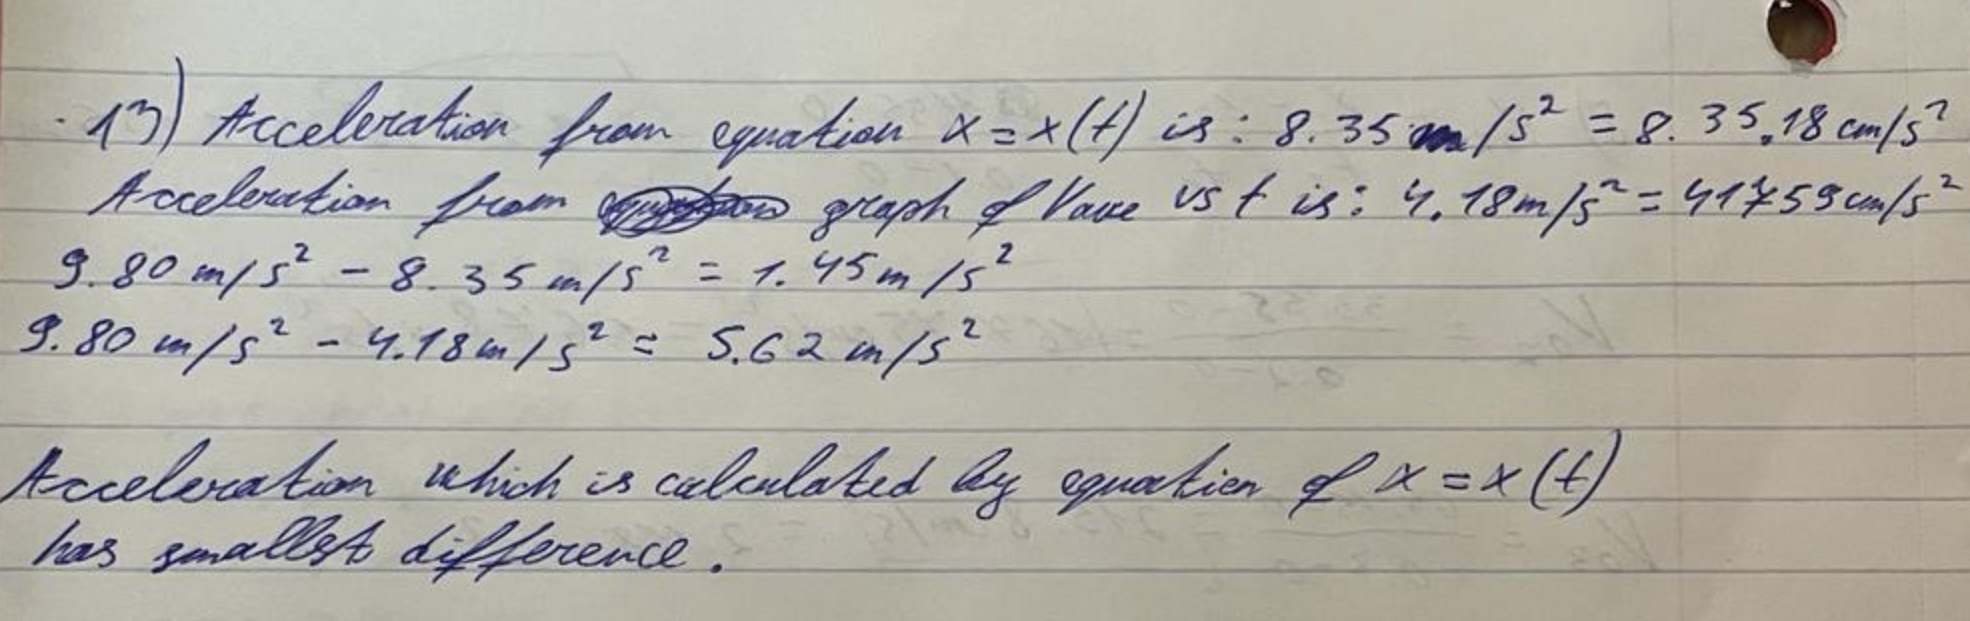 13) Acceleration from equation x = x(t) is: 8.35 m/s² = 8.35.18 cm/s²
Acceleration from graph of Vave vs t is: 4.18m/s² = 41759cm/s²
9.80 m/s² - 8.35 m/s² = 1.45m/s²
9.80 m/s² - 4.18m/s² = 5.62 m/s²
Acceleration which is calculated by equation of x = x(t)
has smallest difference.